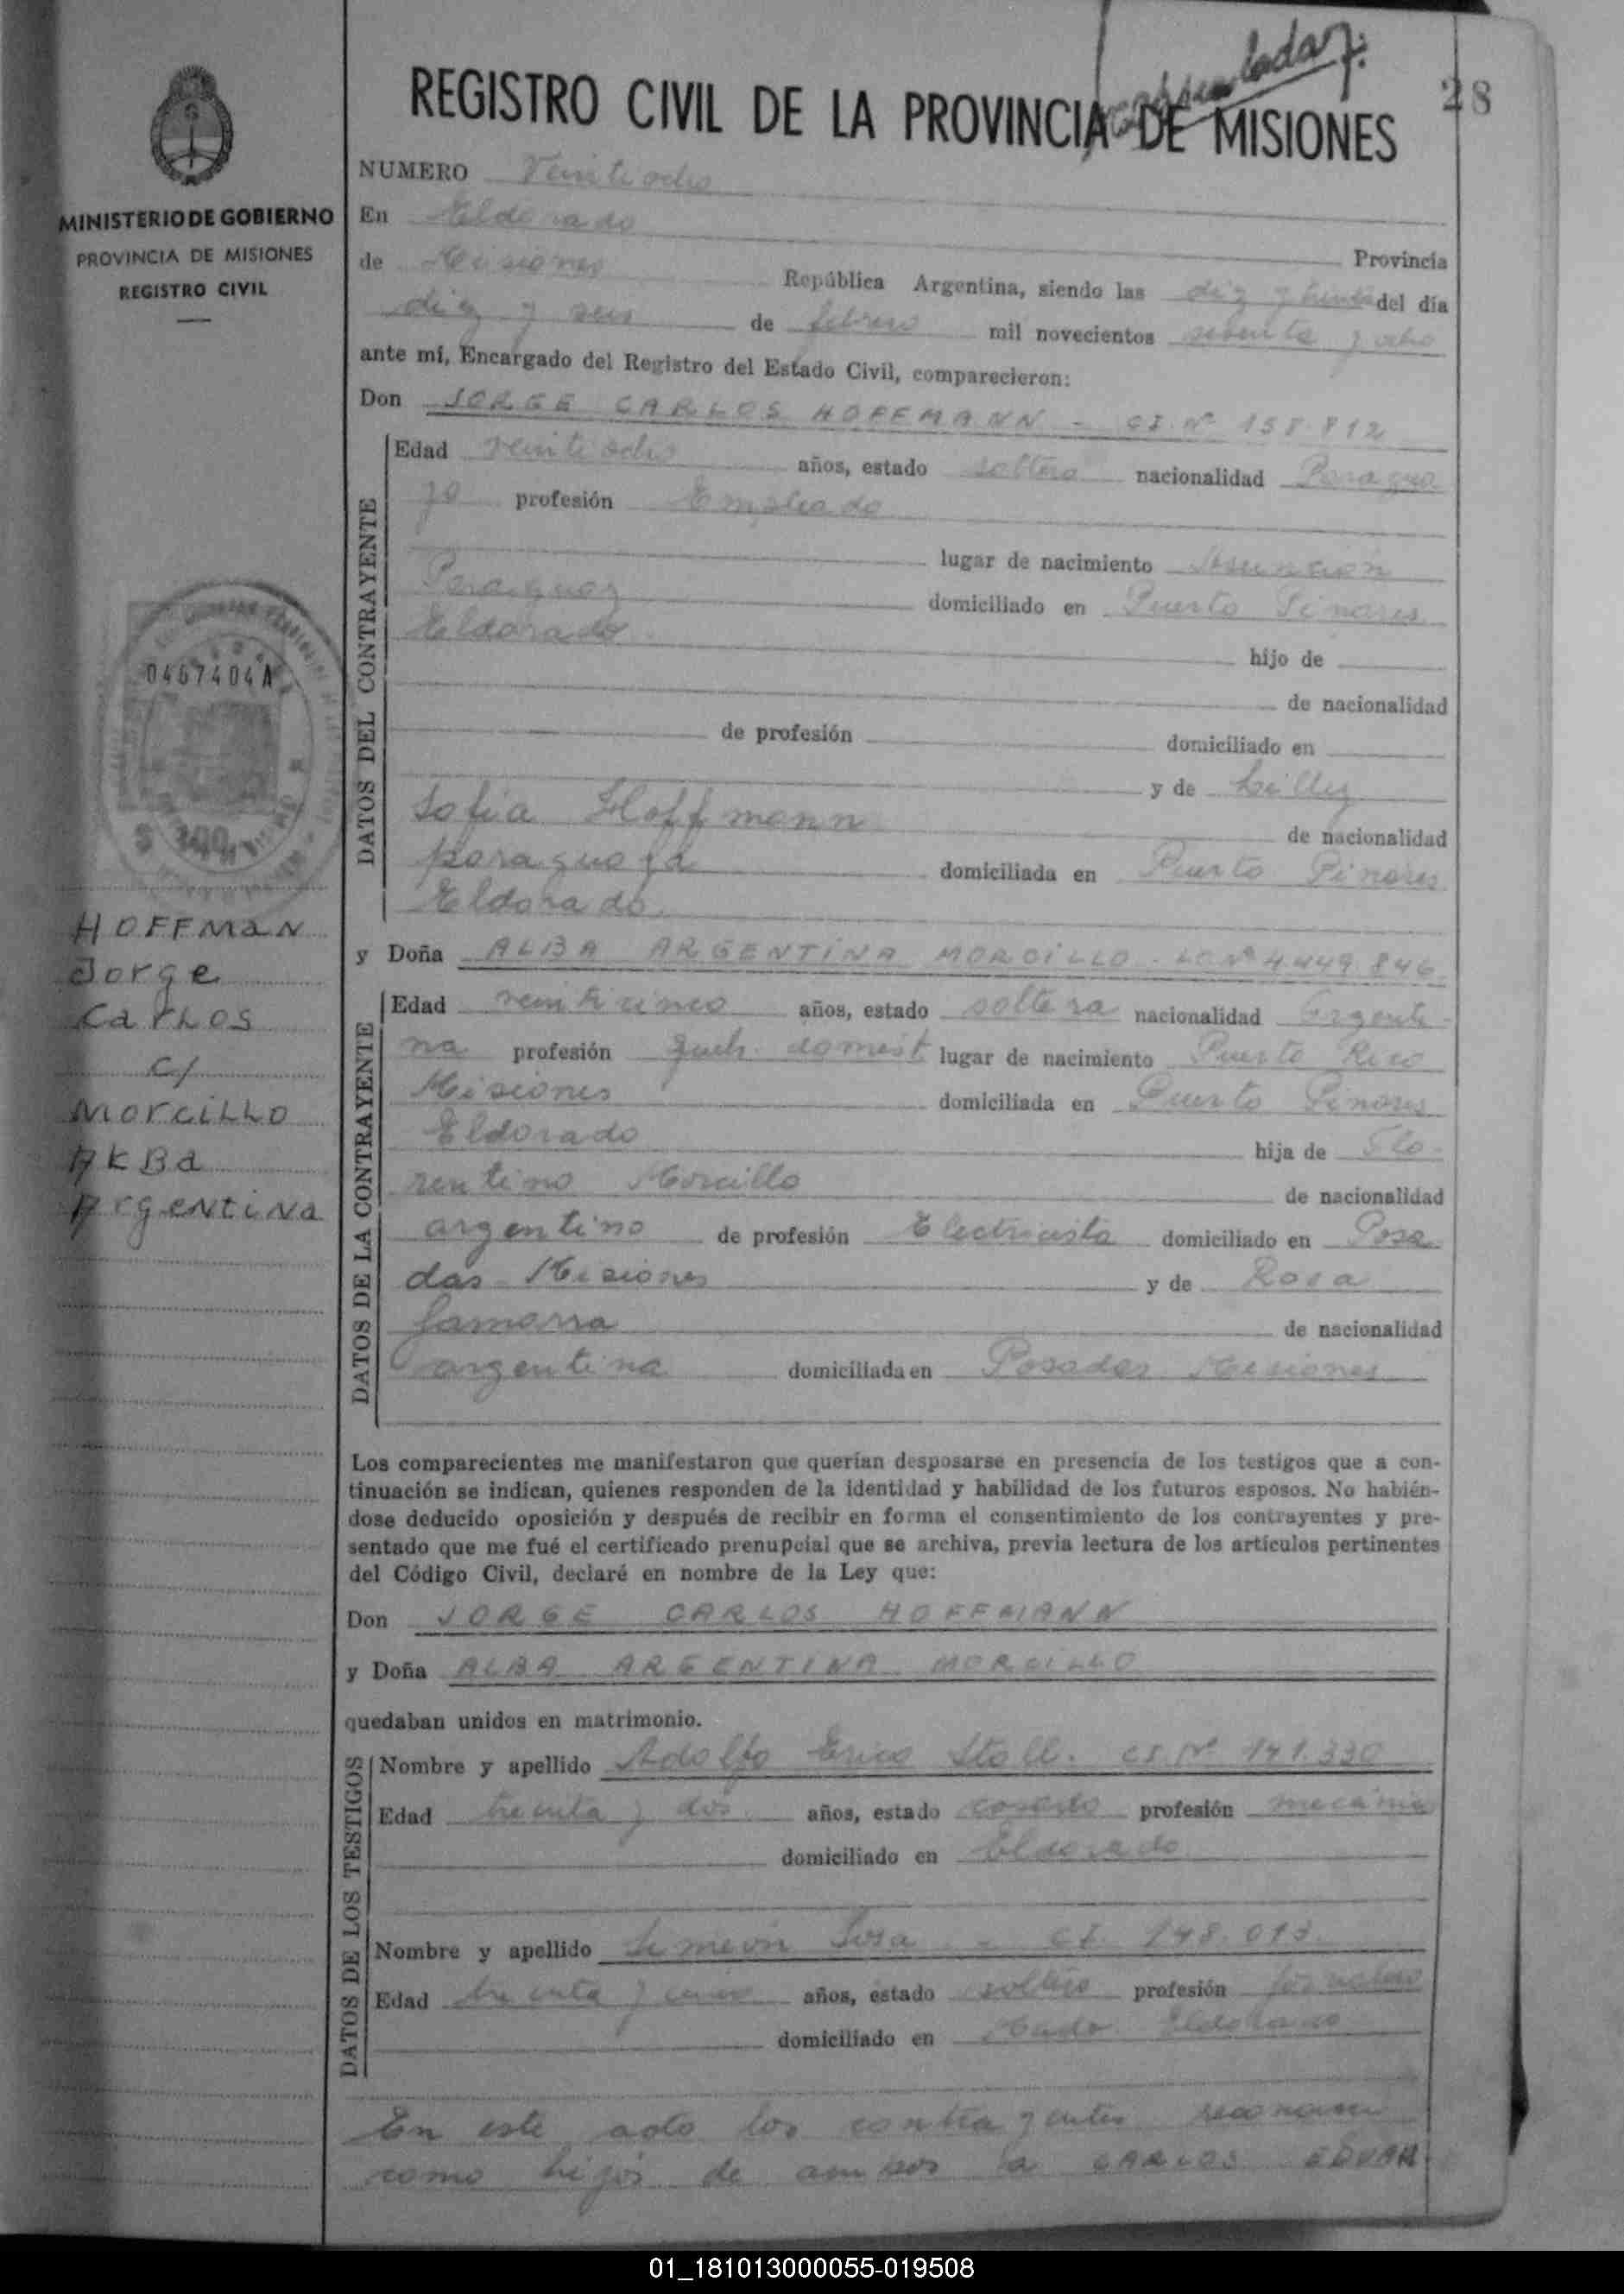 28
REGISTRO CIVIL DE LA PROVINCIA DE MISIONES
MINISTERIO DE GOBIERNO
PROVINCIA DE MISIONES
REGISTRO CIVIL
0467404A
HOFFMAN
Jorge
CarLos
c/
MorciLLo
ALBa
ArgentiNa
NUMERO Veinti ocho
En Eldorado
Provincia
de Misiones República Argentina, siendo las diez y treinta del día
diez y seis de febrero mil novecientos setenta y ocho
ante mí, Encargado del Registro del Estado Civil, comparecieron:
Don JORGE CARLOS HOFFMANN - CI. Nº 158.812
DATOS DEL CONTRAYENTE
Edad veinti ocho años, estado soltero nacionalidad Paragua
yo profesión Empleado
lugar de nacimiento Asunción
Paraguay domiciliado en Puerto Pinares
Eldorado.
hijo de
de nacionalidad
de profesión domiciliado en
y de Lilly
Sofia Hoffmann
de nacionalidad
paraguaya domiciliada en Puerto Pinares
Eldorado.
y Doña ALBA ARGENTINA MORCILLO - LC Nº 4.449.846
DATOS DE LA CONTRAYENTE
Edad veinticinco años, estado soltera nacionalidad Argenti-
na profesión Queh. domest. lugar de nacimiento Puerto Rico
Misiones domiciliada en Puerto Pinares
Eldorado
hija de Flo-
rentino Morcillo
de nacionalidad
argentino de profesión Electricista domiciliado en Posa
das - Misiones y de Rosa
Gamarra
de nacionalidad
argentina domiciliada en Posadas Misiones
Los comparecientes me manifestaron que querían desposarse en presencia de los testigos que a con-
tinuación se indican, quienes responden de la identidad y habilidad de los futuros esposos. No habién-
dose deducido oposición y después de recibir en forma el consentimiento de los contrayentes y pre-
sentado que me fué el certificado prenupcial que se archiva, previa lectura de los artículos pertinentes
del Código Civil, declaré en nombre de la Ley que:
Don JORGE CARLOS HOFFMANN
y Doña ALBA ARGENTINA MORCILLO
quedaban unidos en matrimonio.
DATOS DE LOS TESTIGOS
Nombre y apellido Adolfo Erico Stoll. CI. Nº 141.330
Edad treinta y dos años, estado casado profesión mecánico
domiciliado en Eldorado
Nombre y apellido Simeón Sosa - CI. 148.013
Edad treinta y años, estado soltero profesión jornalero
domiciliado en Eldorado
En este acto los contrayentes reconocen
como hijos de ambos a CARLOS EDUAR
01_181013000055-019508